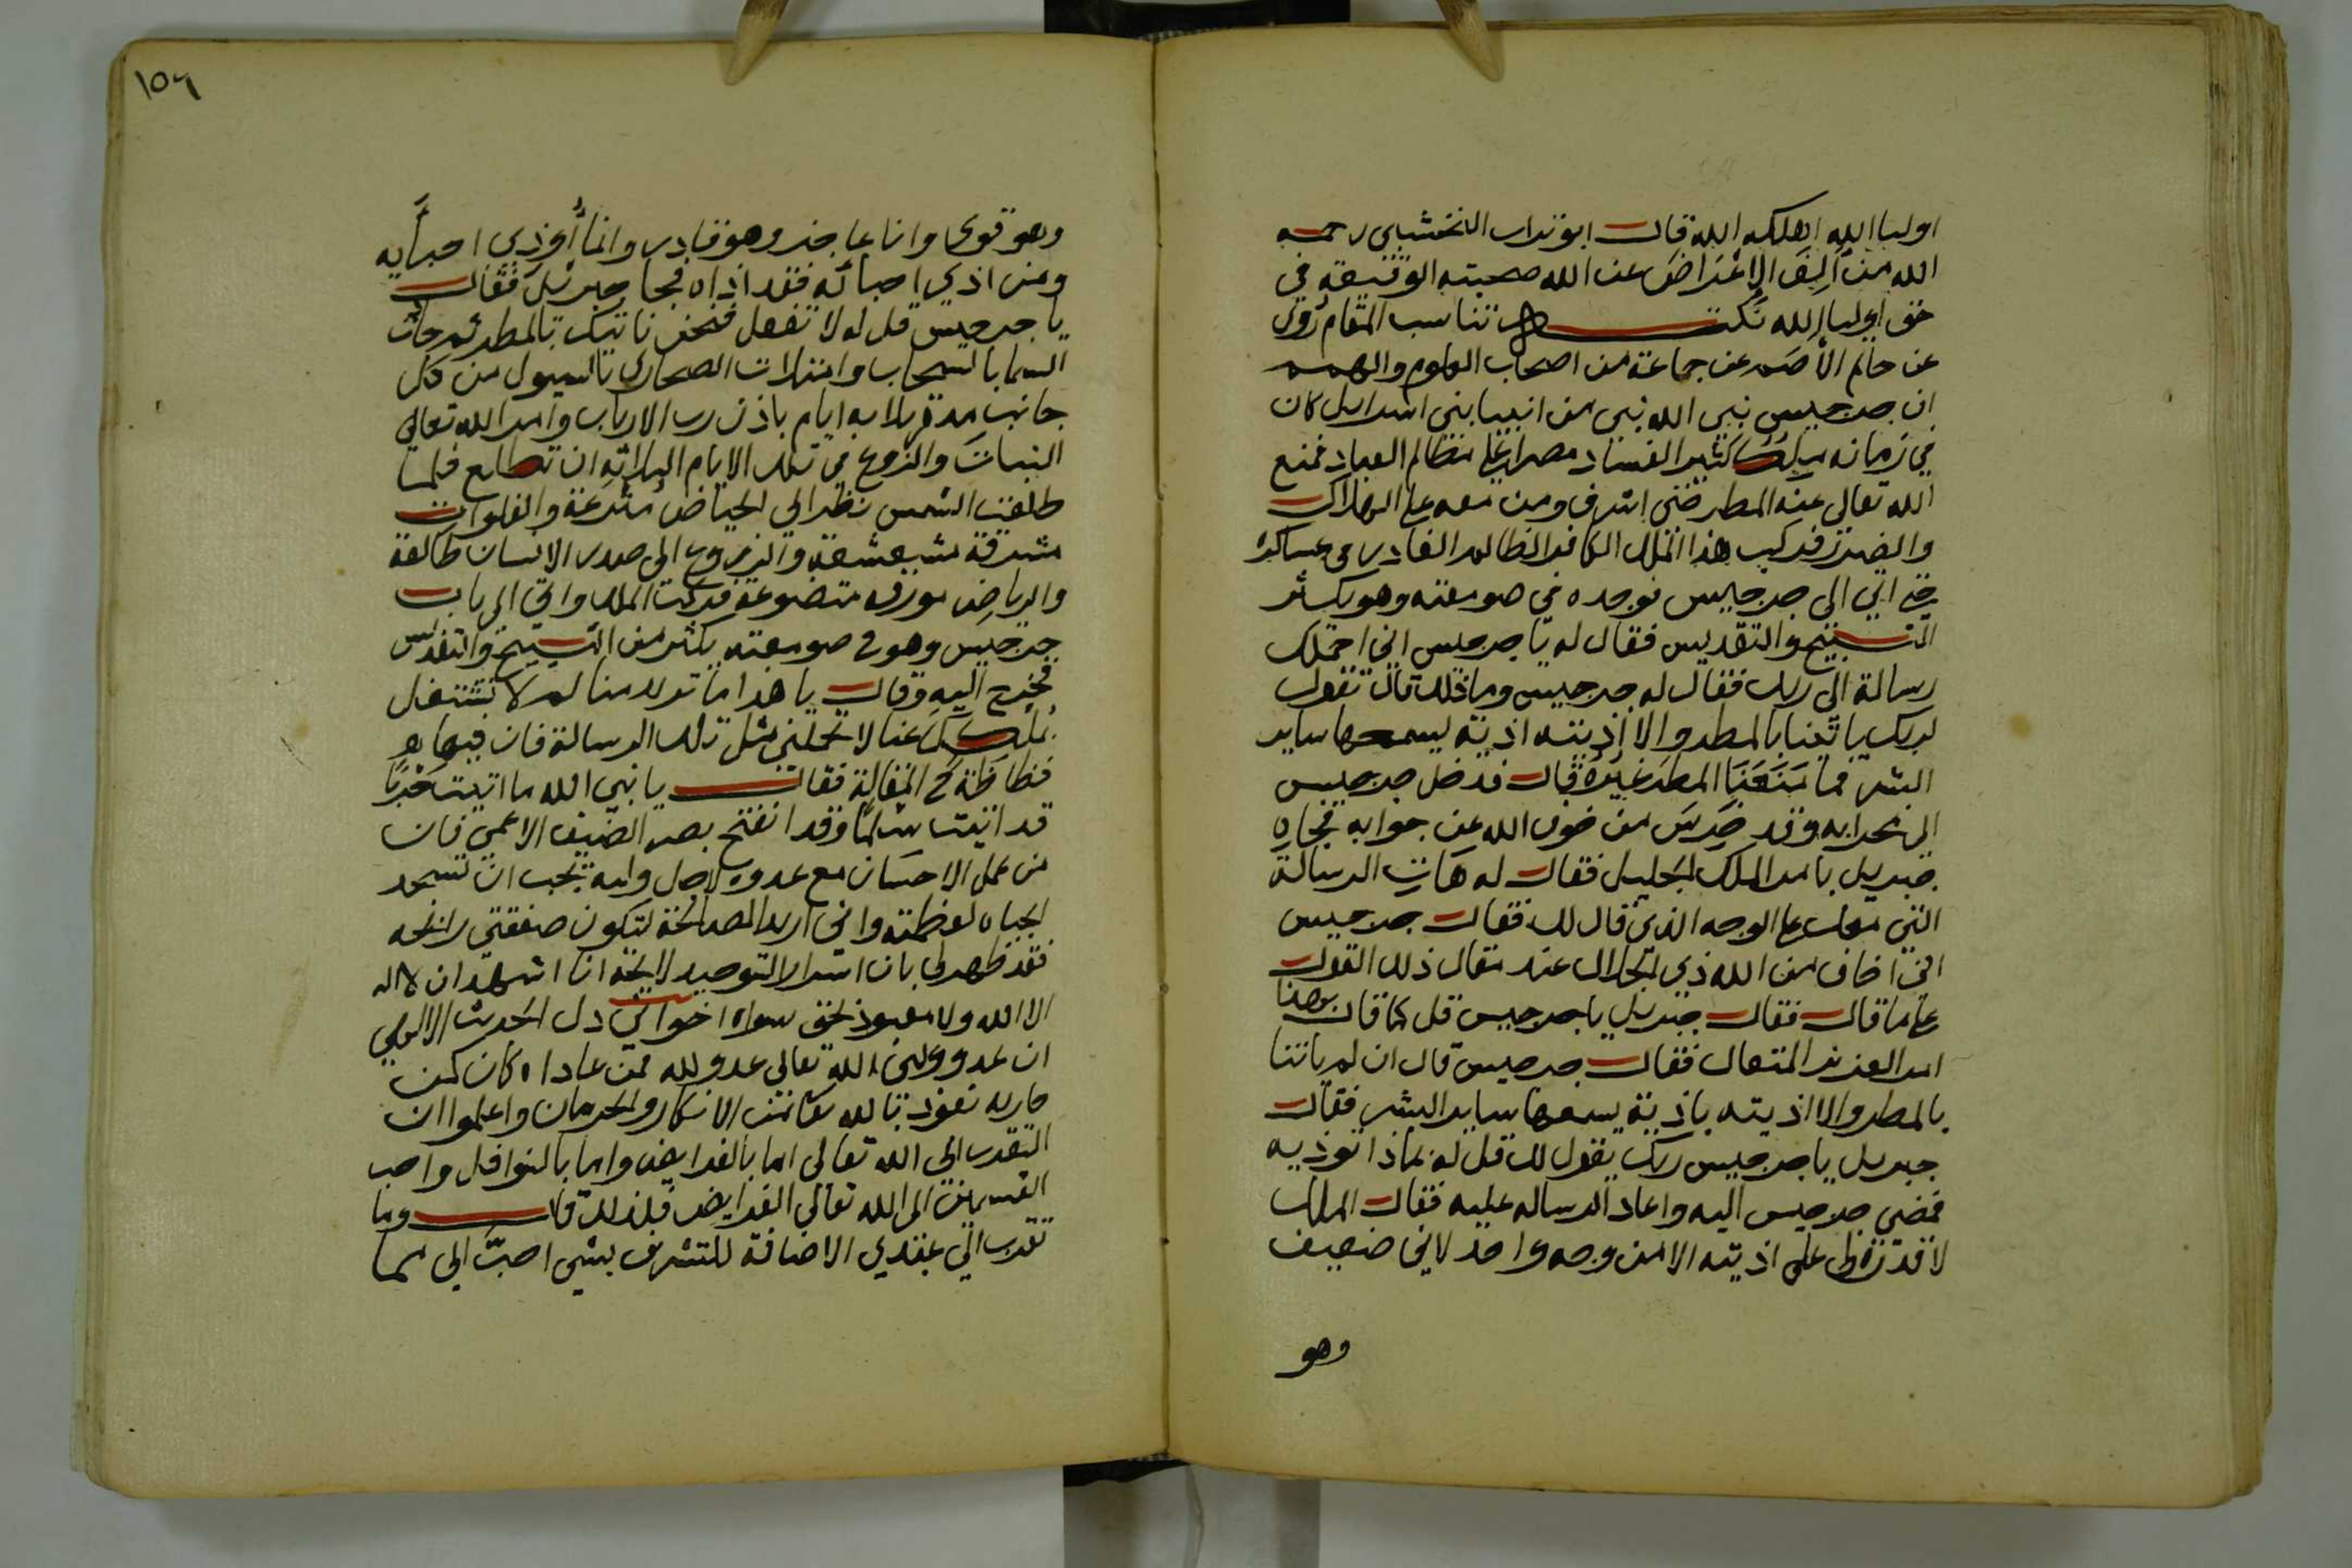 اوليا الله اهلكه الله قال ابو تراب النخشبى رحمه
الله من ألِفَ الاعْتراضَ عن الله صحبته الوقيعة في
حق اوليا الله نكتة تناسب المقام رُوى
عن حاتم الأصَم عن جماعة من اصحاب العلوم والهمم
ان جرجيس نبي الله نبى من انبيا بنى اسرايل كان
في زمانه ملك كثير الفساد مصرا على مظالم العباد فمنع
الله تعالى عنه المطر حتى اشرف ومن معه على الهلاك
والضرر فركب هذا الملك الكافر الظالم الغادر فى عساكره
حتى اتي الى جرجيس فوجده في صومعته وهو يكثر
التسبيح والتقديس فقال له يا جرجيس اني احملك
رسالة الى ربك فقال له جرجيس وما تلك قال تقول
لربك ياتينا بالمطر والا اذيته اذية يسمعها ساير
البشر فما مَنَعَنَا المطرَ غيرُهُ قال فدخل جرجيس
الى محرابه وقد خَرِسَ من خوف الله عن جوابه فجاه
جبريل بامر الملك الجليل فقال له هَاتِ الرسالة
التي معك على الوجه الذي قال لك فقال جرجيس
اني اخاف من الله ذي الجلال عند مقال ذلك القول
على ما قال فقال جبريل يا جرجيس قل كما قال بهذا
امر العزيز المتعال فقال جرجيس قال ان لم ياتنا
بالمطر والا اذيته باذية يسمعها ساير البشر فقال
جبريل يا جرجيس ربك يقول لك قل له بماذا توذيه
فمضى جرجيس اليه واعاد الرساله عليه فقال الملك
لا قدرة لى على اذيته الا من وجه واحد لاني ضعيف
وهو
١٥٦
وهو قوى وانا عاجز وهو قادر وانما أُوذي احبأيه
ومن اذي احبائه فقد اذاه فجا جبرئيل فقال
يا جرجيس قل له لا تفعل فنحن ناتيك بالمطر ثم جات
السما بالسحاب وامتلات الصحارى بالسيول من كل
جانب مدة ثلاثه ايام باذن رب الارباب وامر الله تعالي
النباتَ والزرع في تلك الايام الثلاثه ان تطلع فلما
طلعت الشمس نظر الى الحياض مترعة والفلوات
مشرقة مشعشعة والزروع الى صدر الانسان طالعة
والرياض مورقه متضوعة فركب الملك واتى الى باب
جرجيس وهو فى صومعته يكثر من التسبيح والتقديس
فخرج اليه وقال يا هذا ما تريد منا لم لا تشتغل
بملكك عنا لا تحملني مثل تلك الرسالة فان فيها
فظاظة في المقالة فقال يا نبي الله ما اتيت حَرْبًا
قد اتيت سلمًا وقد انفتح بصر الضعيف الاعمى فان
من عمل الاحسان مع عدوه لاجل وليه يجب ان تسجد
الجباه لعظمته واني اريد المصالحة لتكون صفقتي رابحه
فقد ظهر لى بان اسرار التوحيد لايحة انا اشهد ان لا اله
الا الله ولا معبود بحق سواه اخواني دل الحديث الالهي
ان عدو ولى الله تعالى عدو لله فمن عاداه كان كمن
حاربه نعوذ بالله من الانكار والحرمان واعلموا ان
التقرب الى الله تعالى اما بالفرايض واما بالنوافل واحب
القسمين الى الله تعالى الفرايض فلذلك قال وما
تقرب الي عبدي الاضافة للتشريف بشي احبَّ الى مما